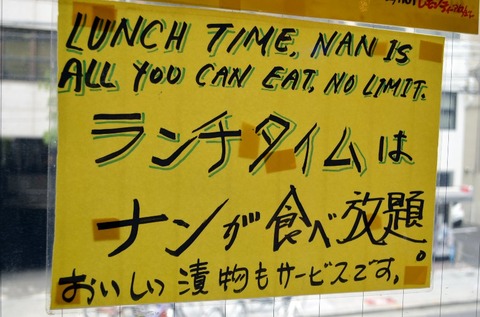 LUNCH TIME, NAN IS
ALL YOU CAN EAT, NO LIMIT.
ランチタイムは
ナンが食べ放題。
おいしい漬物もサービスです。